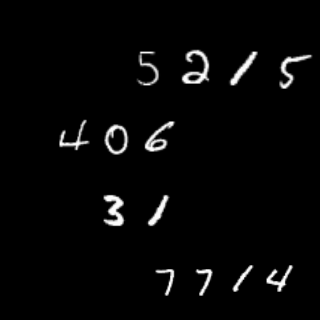 5215
406
31
7714